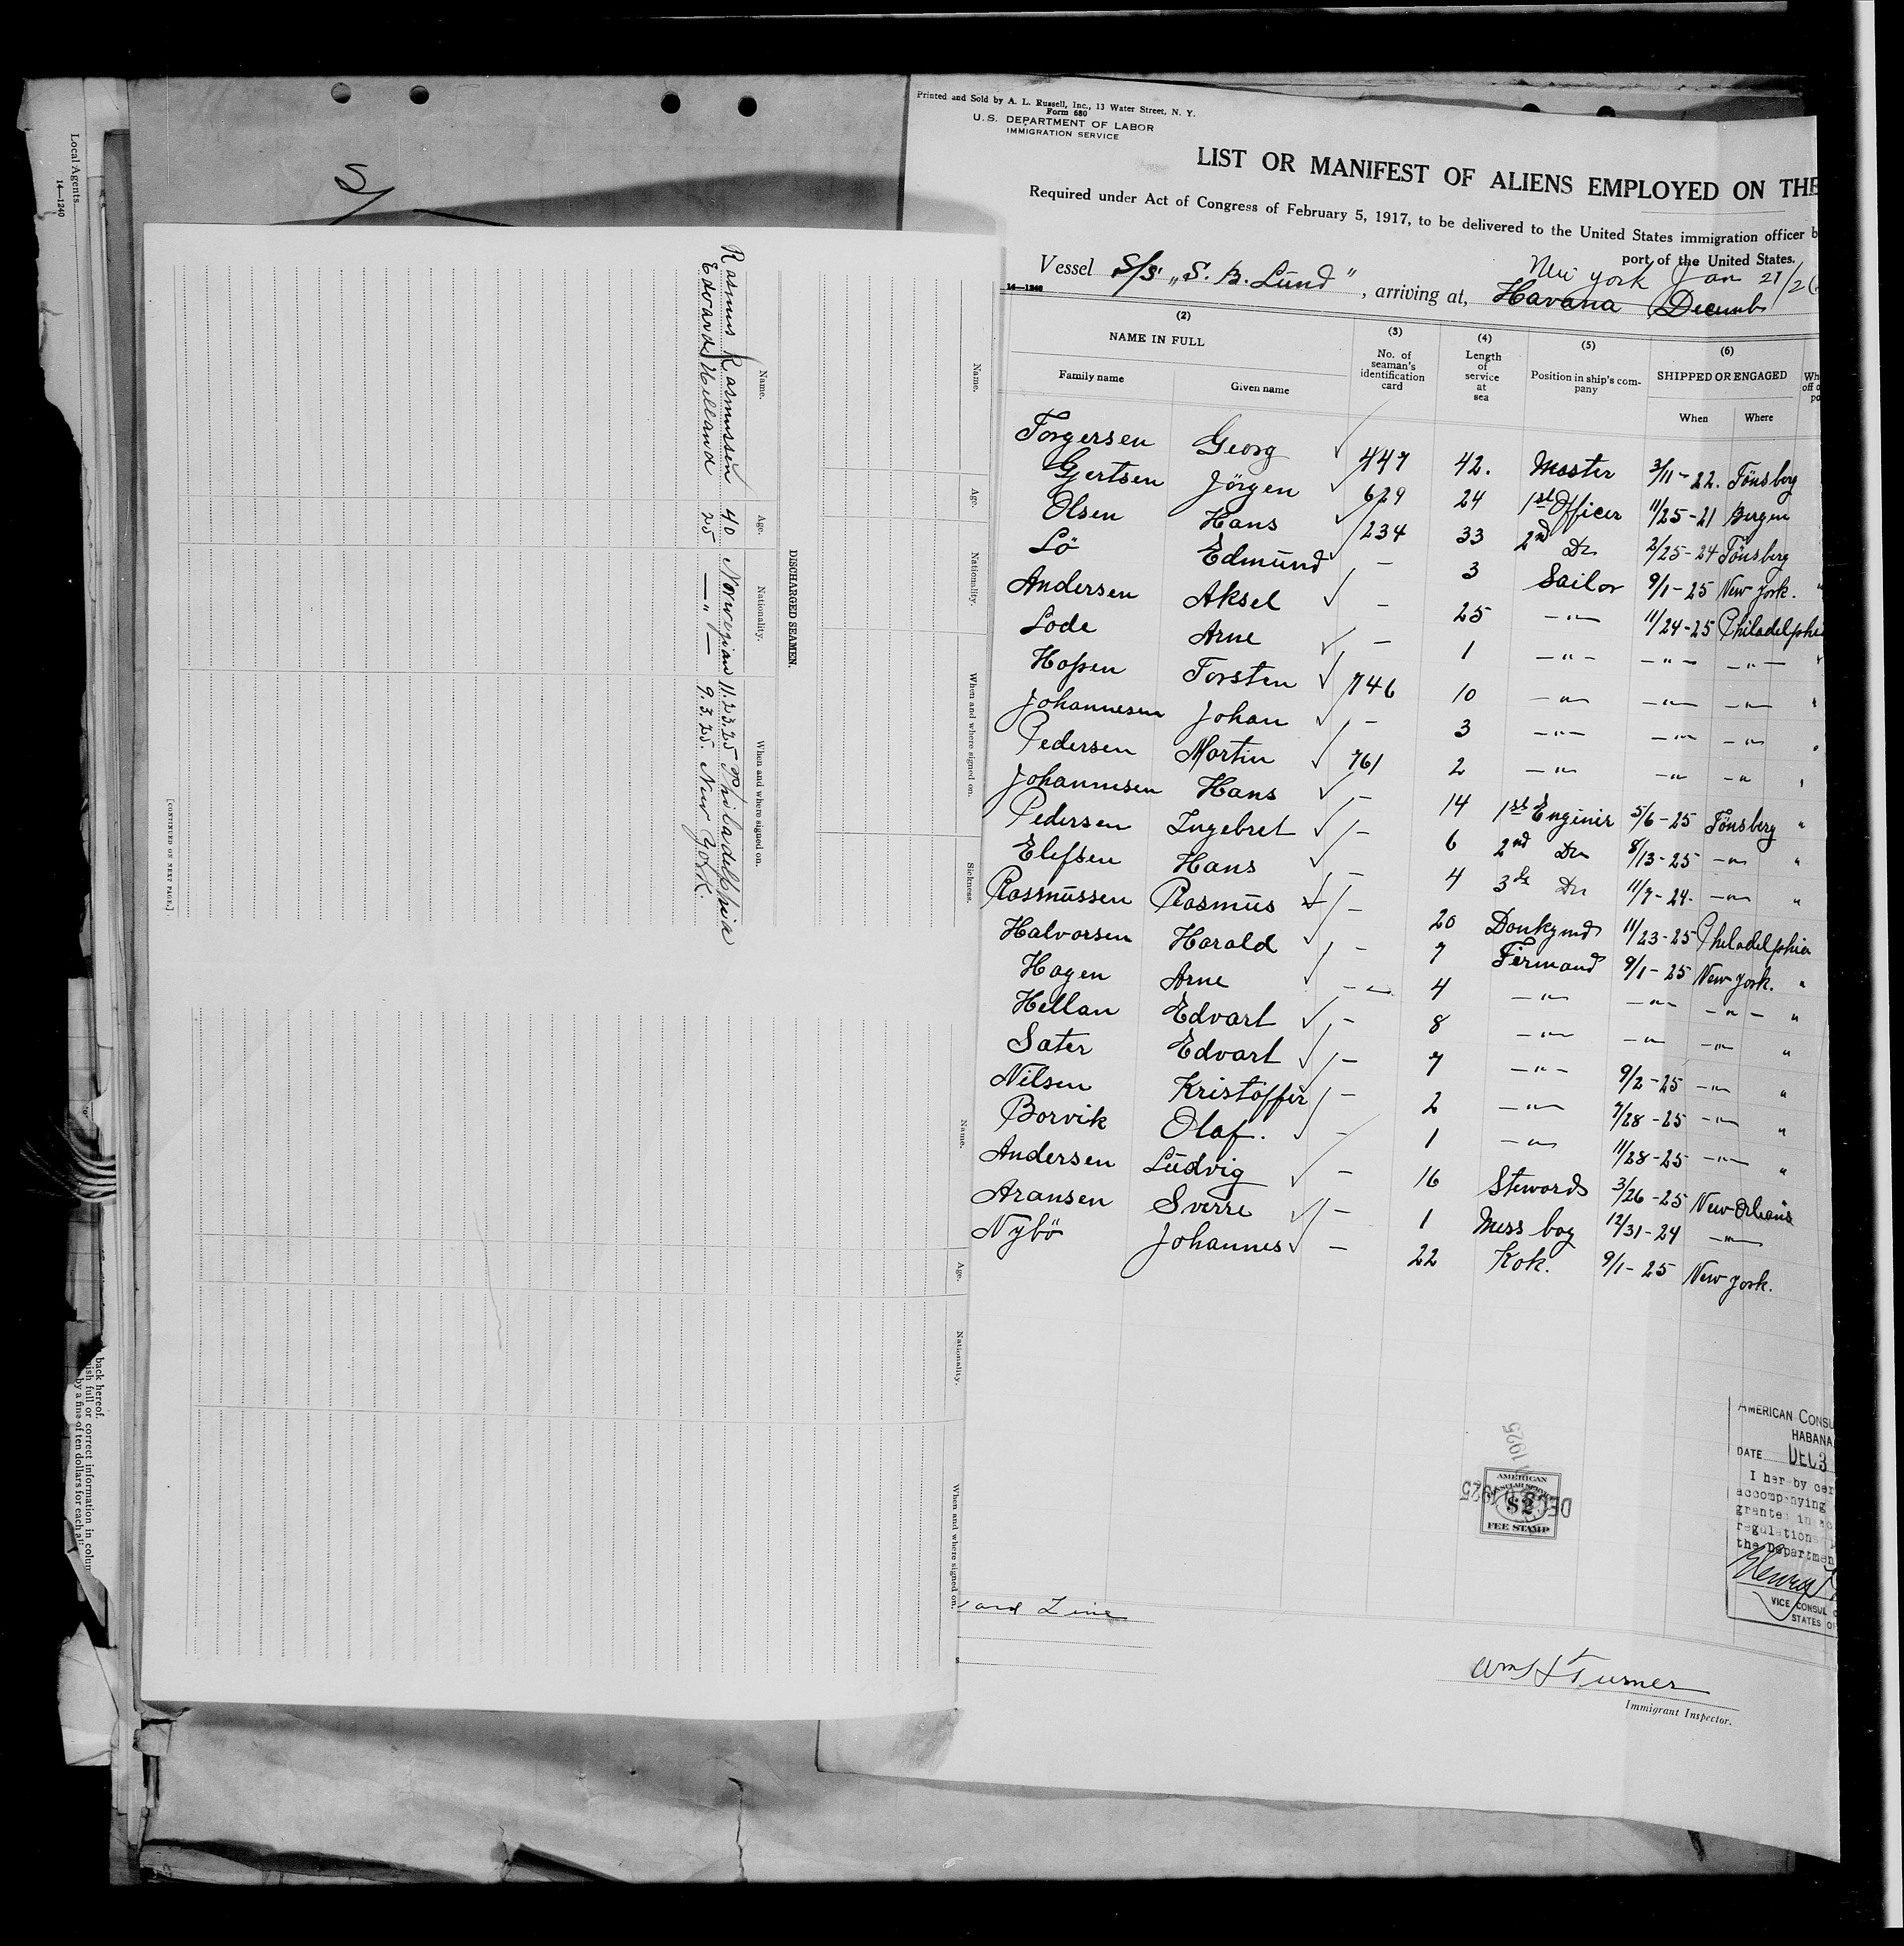 Local Agents
14—1240
S/
Printed and Sold by A. L. Russell, Inc., 13 Water Street, N. Y.
Form 680
U. S. DEPARTMENT OF LABOR
IMMIGRATION SERVICE
LIST OR MANIFEST OF ALIENS EMPLOYED ON THE
Required under Act of Congress of February 5, 1917, to be delivered to the United States immigration officer b
port of the United States.
New york Jan 21/26
Vessel S/S „S. B. Lund" , arriving at, Havana Decemb
14—1240
(2) (3) (4) (5) (6)
NAME IN FULL No. of seaman's identification card Length of service at sea Position in ship's company SHIPPED OR ENGAGED
Family name Given name When Where
Torgersen Georg ✓ 447 42. Master 3/11-22. Tönsberg
Gjertsen Jörgen ✓ 629 24 1st Officer 11/25-21 Bergen
Olsen Hans ✓ 234 33 2nd Do 2/25-24 Tönsberg
Lö Edmund ✓ — 3 Sailor 9/1-25 New york.
Andersen Aksel ✓ — 25 —"— 11/24-25 Philadelphia
Lode Arne ✓ — 1 —"— —"— —"—
Hopen Torsten ✓ 746 10 —"— —"— —"—
Johannesen Johan ✓ — 3 —"— —"— —"—
Pedersen Martin ✓ 761 2 —"— —"— —"—
Johannesen Hans ✓ — 14 1st Enginir 5/6-25 Tönsberg "
Pedersen Ingebret ✓ — 6 2nd Do 8/13-25 —"— "
Elefsen Hans ✓ — 4 3de Do 11/7-24. —"— "
Rasmussen Rasmus ✓ — 20 Donkymd 11/23-25 Philadelphia
Halvorsen Harald ✓ — 7 Firmand 9/1-25 New york. "
Hagen Arne ✓ —"— 4 —"— —"— —"— "
Hellan Edvart ✓ — 8 —"— —"— —"— "
Sater Edvart ✓ — 7 —"— 9/2-25 —"— "
Nilsen Kristoffer ✓ — 2 —"— 7/28-25 —"— "
Borvik Olaf. ✓ — 1 —"— 11/28-25 —"— "
Andersen Ludvig ✓ — 16 Stewards 3/26-25 New Orleans
Aransen Sverre ✓ — 1 Mess boy 12/31-24 —"—
Nybö Johannes ✓ — 22 Kok. 9/1-25 New york.
AMERICAN CONSU
HABANA
DATE DEC 3
I her by cer
accompanying
granted in
regulations
the Departmen
VICE CONSUL
STATES OF
DEC 30 1925
AMERICAN
CONSULAR SERVICE
$2
FEE STAMP
ard Line
Wm H Turner
Immigrant Inspector.
Name. Age. Nationality. When and where signed on. Sickness.
DISCHARGED SEAMEN.
Name. Age. Nationality. When and where signed on.
Rasmus Rasmussen 40 Norwegian 11.23.25 Philadelphia
Edvard Helland 25 —"— 9.3.25. New York.
[CONTINUED ON NEXT PAGE.]
Name. Age. Nationality. When and where signed on.
back hereof.
ish full or correct information in colum
by a fine of ten dollars for each ali